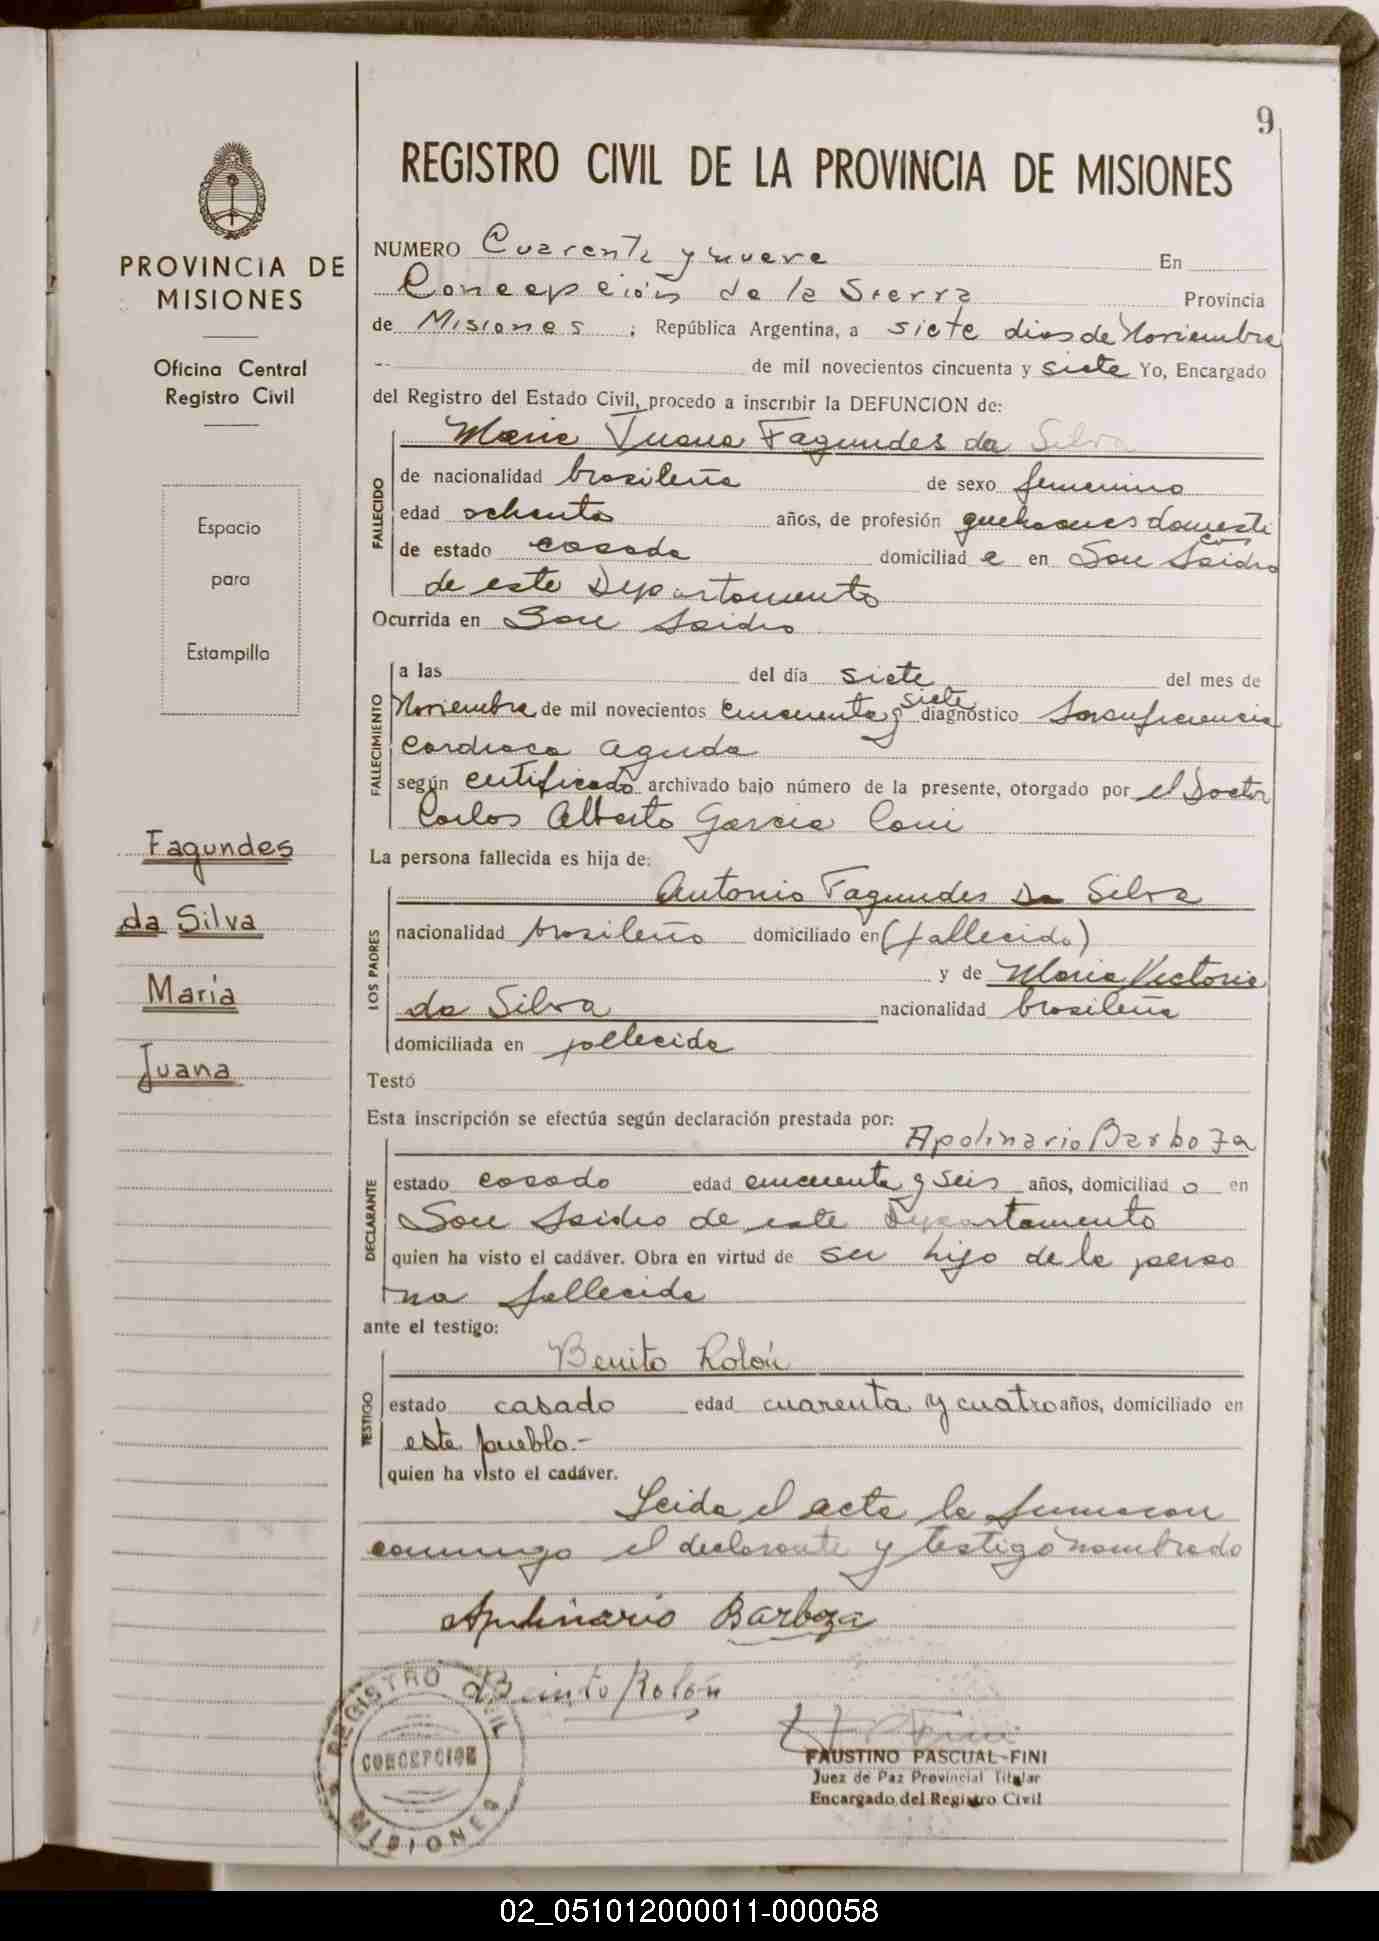 9
REGISTRO CIVIL DE LA PROVINCIA DE MISIONES
PROVINCIA DE
MISIONES
Oficina Central
Registro Civil
Espacio
para
Estampilla
Fagundes
da Silva
María
Juana
NUMERO Cuarenta y nueve En
Concepción de la Sierra Provincia
de Misiones ; República Argentina, a siete dias de Noviembre
de mil novecientos cincuenta y siete Yo, Encargado
del Registro del Estado Civil, procedo a inscribir la DEFUNCION de:
Maria Juana Fagundes da Silva
FALLECIDO
de nacionalidad brasileña de sexo femenino
edad ochenta años, de profesión quehaceres domesti
cos
de estado casada domiciliad a en San Isidro
de este Departamento
Ocurrida en San Isidro
FALLECIMIENTO
a las del día siete del mes de
Noviembre de mil novecientos cincuenta y siete diagnóstico Insuficiencia
cardiaca aguda
según certificado archivado bajo número de la presente, otorgado por el Doctor
Carlos Alberto Garcia Coni
La persona fallecida es hija de:
LOS PADRES
Antonio Fagundes Da Silva
nacionalidad brasileño domiciliado en (fallecido)
y de Maria Victoria
da Silva nacionalidad brasileña
domiciliada en fallecida
Testó
Esta inscripción se efectúa según declaración prestada por:
Apolinario Barboza
DECLARANTE
estado casado edad cincuenta y seis años, domiciliad o en
San Isidro de este Departamento
quien ha visto el cadáver. Obra en virtud de ser hijo de la perso
na fallecida
ante el testigo:
Benito Rolón
TESTIGO
estado casado edad cuarenta y cuatro años, domiciliado en
este pueblo.-
quien ha visto el cadáver.
Leida el acta la firmaron
conmigo el declarante y testigo nombrado
Apolinario Barboza
Benito Rolón
REGISTRO CIVIL
CONCEPCION
MISIONES
FAUSTINO PASCUAL FINI
Juez de Paz Provincial Titular
Encargado del Registro Civil
02_051012000011-000058